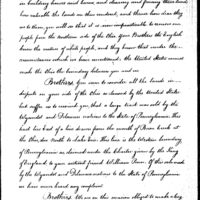 in building houses and barns, and clearing and fencing their lands,
how valuable the lands on this were considered, and thence how dear they are
to them; you will see that it is now impracticable to remove our
people from the northern side of the Ohio. Your Brothers the English
know the nature of white people, and they know that under the cir-
cumstances which we have mentioned, the United States cannot
make the Ohio the boundary between you and us.
Brothers, You seem to consider all the lands in
dispute on your side of the Ohio as claimed by the United States
but suffer us to remind you, that a large tract was sold by the
Wyandot and Delaware nations to the State of Pennsylvania. This
tract lies East of a line drawn from the mouth of Beaver Creek at
the Ohio due North to Lake Erie. This line is the Western boundary
of Pennsylvania as claimed under the Charter given by the King
of England to your antient friend William Penn. Of this sale made
by the Wyandot and Delaware nations to the State of Pennsylvania
we have never heard any complaint.
Brothers, We are on this occasion obliged to make a long